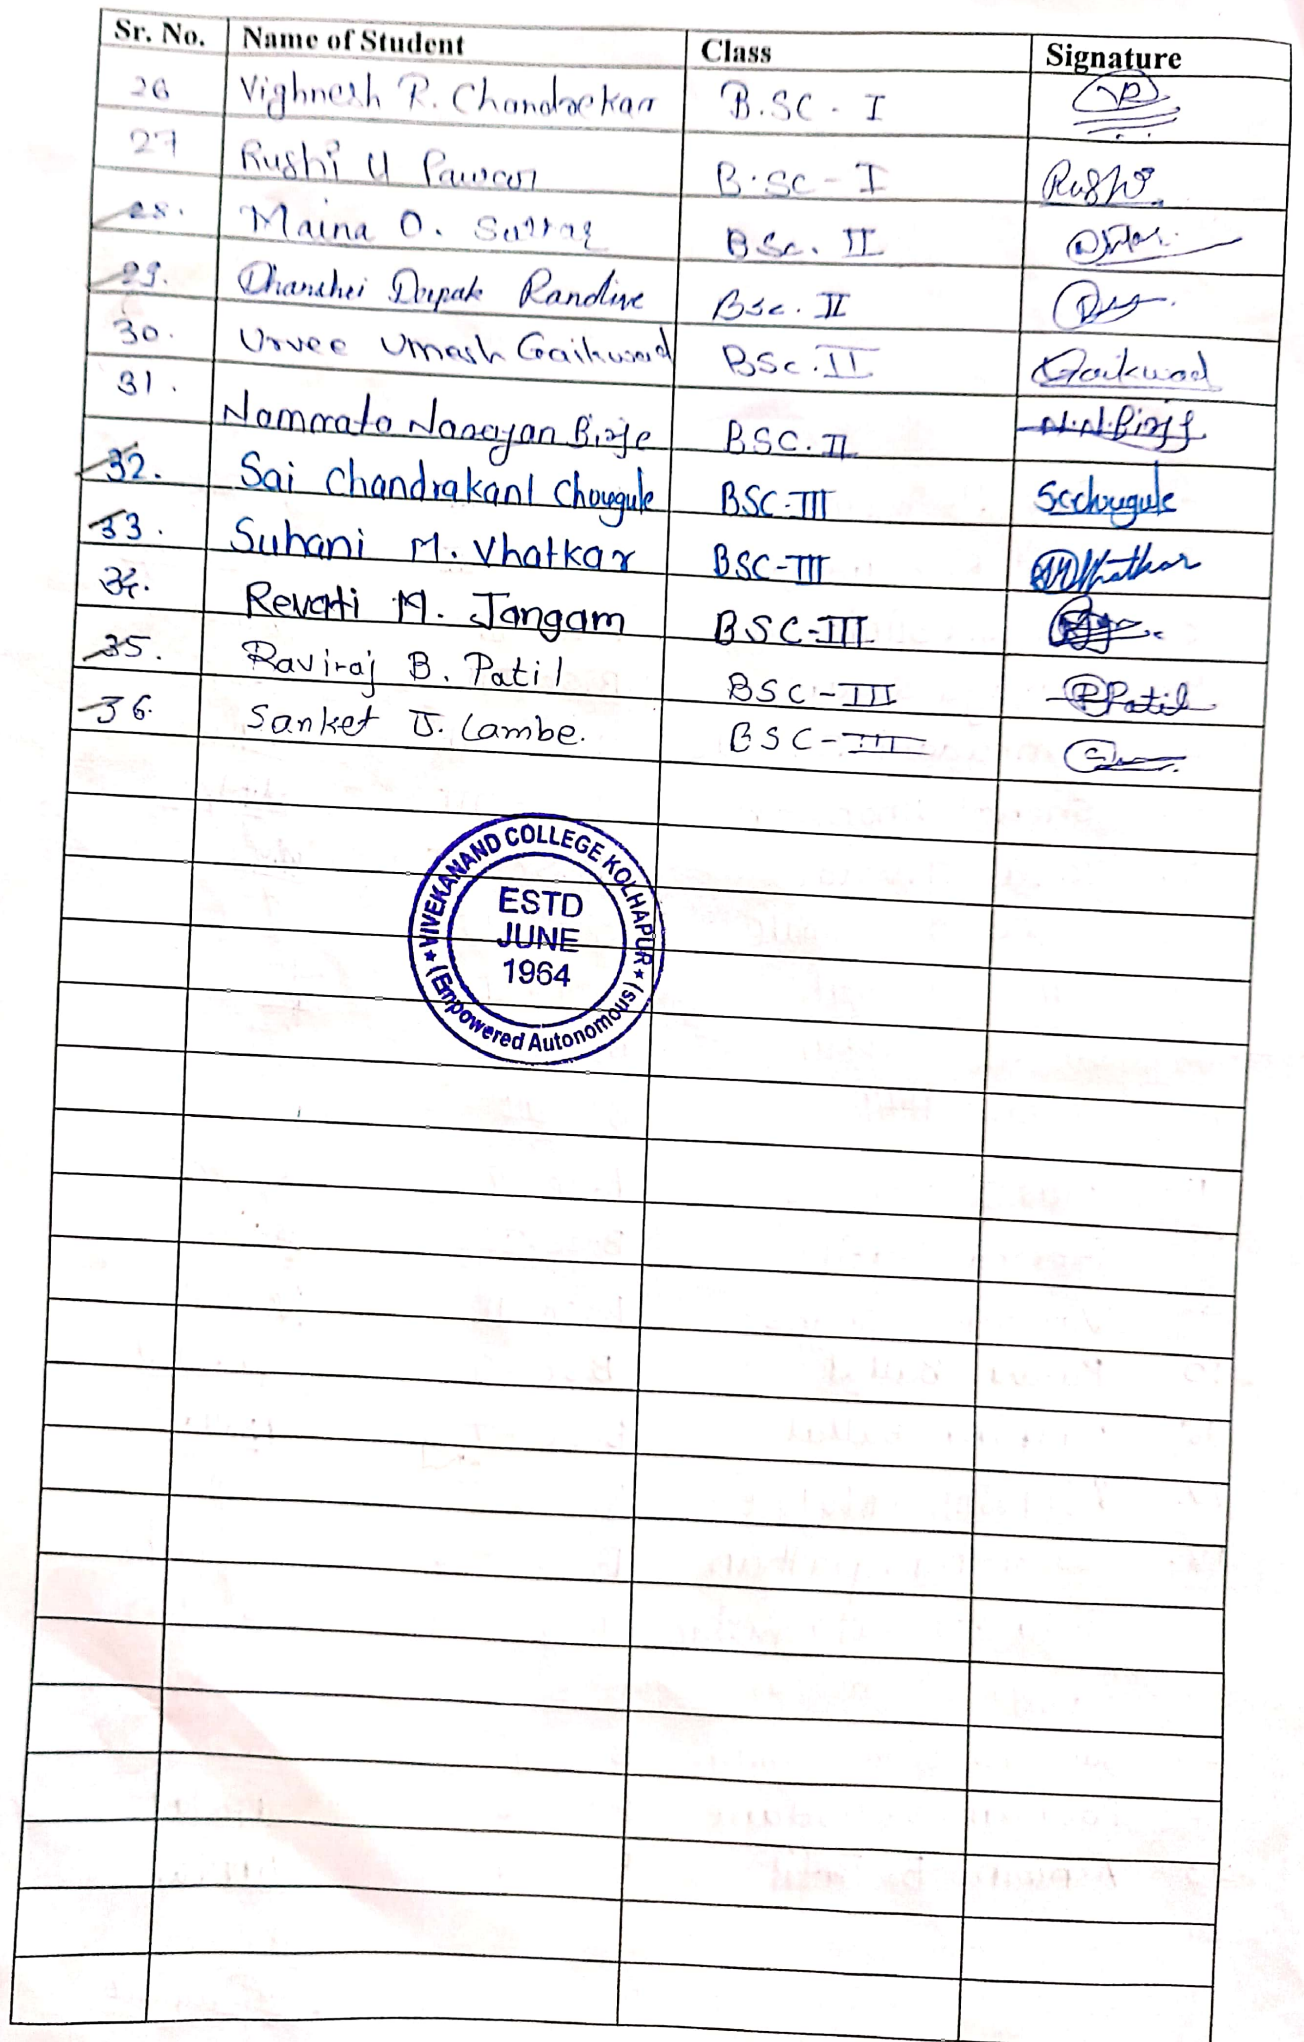 Sr. No. Name of Student Class Signature
26 Vighnesh R. Chandrekar B.SC - I
27 Rushi U Pawar B.SC - I Rushi
28. Maina O. BSc. II
29. Dhanshri Deepak Randive BSc. II
30. Urvee Umesh Gaikwad BSc. II Gaikwad
31. Namrata Narayan Birje BSC. II N.N.Birje
32. Sai Chandrakant Chougule BSC-III Scchougule
33. Suhani M. Vhatkar BSC-III Vhatkar
34. Revati M. Jangam BSC-III
35. Raviraj B. Patil BSC-III RPatil
36. Sanket J. Lambe. BSC-III
VIVEKANAND COLLEGE KOLHAPUR
(Empowered Autonomous)
ESTD
JUNE
1964